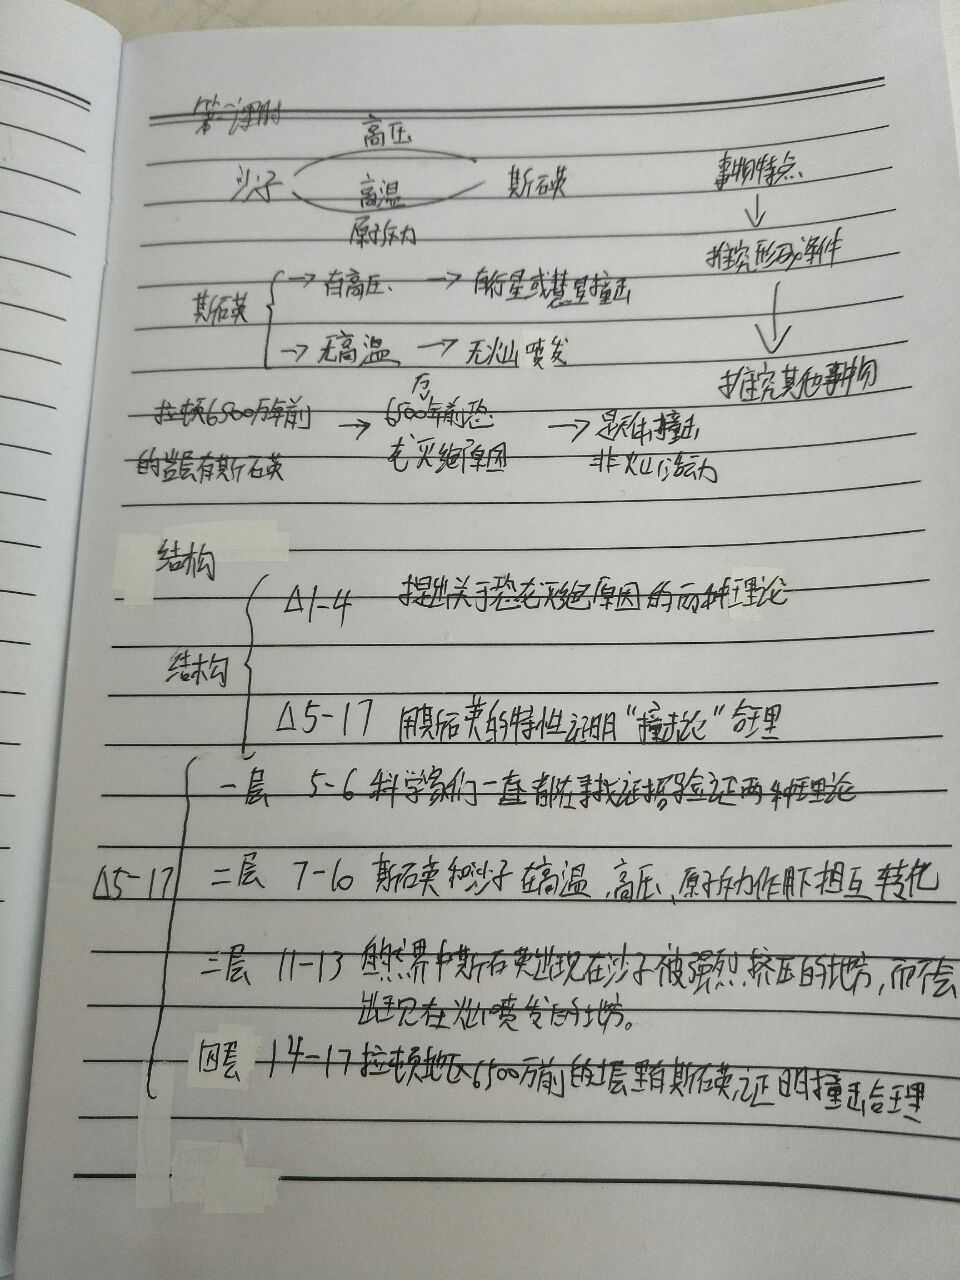 第一课时
高压
沙子 高温 斯石英
原子斥力
事物特点
↓
推究形成条件
↓
推究其他事物
斯石英 { → 有高压 → 有行星或慧星撞击
→ 无高温 → 无火山喷发
拉顿6500万年前的岩层有斯石英 → 6500万年前恐龙灭绝原因 → 是天体撞击非火山活动
结构
结构 { Δ1-4 提出关于恐龙灭绝原因的两种理论
Δ5-17 用斯石英的特性证明“撞击论”合理
Δ5-17 { 一层 5-6 科学家们一直都在寻找证据验证两种理论
二层 7-10 斯石英和沙子在高温、高压、原子斥力作用下相互转化
三层 11-13 自然界中斯石英出现在沙子被强烈挤压的地方,而不会
出现在火山喷发的地方。
四层 14-17 拉顿地区6500万前的土层里有斯石英,证明撞击合理